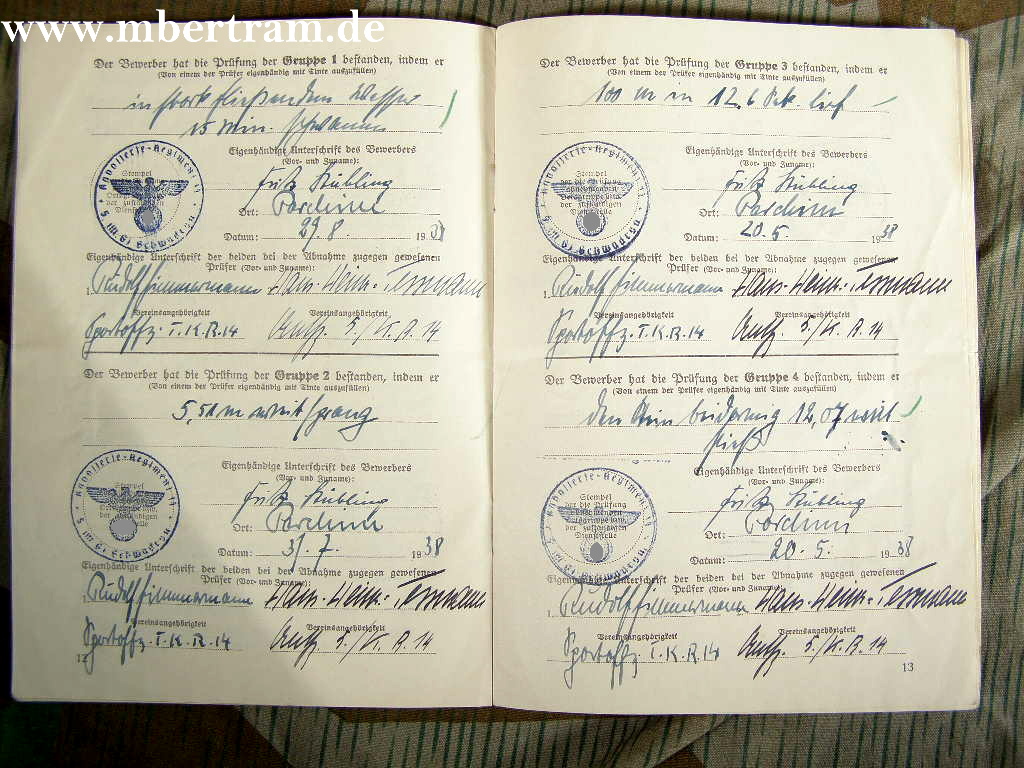 www.mbertram.de
Der Bewerber hat die Prüfung der Gruppe 1 bestanden, indem er
(Von einem der Prüfer eigenhändig mit Tinte auszufüllen)
in stark fließendem Wasser
15 Min. schwamm
Eigenhändige Unterschrift des Bewerbers
(Vor- und Zuname):
Kavallerie-Regiment 14
Stempel
der zuständigen
Dienststelle
Fritz Kübling
Ort: Parchim
Datum: 29.8. 1938
Eigenhändige Unterschrift der beiden bei der Abnahme zugegen gewesenen
Prüfer (Vor- und Zuname):
1. Rudolf Zimmermann Hans-Heinr. Tessmann
Vereinsangehörigkeit
Sportoffz. T.K.R.14 5./K.R.14
Der Bewerber hat die Prüfung der Gruppe 2 bestanden, indem er
(Von einem der Prüfer eigenhändig mit Tinte auszufüllen)
5,51 m weit sprang
Eigenhändige Unterschrift des Bewerbers
(Vor- und Zuname):
Kavallerie-Regiment 14
Stempel
der zuständigen
Dienststelle
Fritz Kübling
Ort: Parchim
Datum: 31.7. 1938
Eigenhändige Unterschrift der beiden bei der Abnahme zugegen gewesenen
Prüfer (Vor- und Zuname):
1. Rudolf Zimmermann Hans-Heinr. Tessmann
Vereinsangehörigkeit
Sportoffz. T.K.R.14 5./K.R.14
12
Der Bewerber hat die Prüfung der Gruppe 3 bestanden, indem er
(Von einem der Prüfer eigenhändig mit Tinte auszufüllen)
100 m in 12,6 Sek. lief
Eigenhändige Unterschrift des Bewerbers
(Vor- und Zuname):
Kavallerie-Regiment 14
Stempel
der die Prüfung
abnehmenden
Ortsgruppe bzw.
der zuständigen
Dienststelle
Fritz Kübling
Ort: Parchim
Datum: 20.5. 1938
Eigenhändige Unterschrift der beiden bei der Abnahme zugegen gewesenen
Prüfer (Vor- und Zuname):
1. Rudolf Zimmermann Hans-Heinr. Tessmann
Vereinsangehörigkeit
Sportoffz. T.K.R.14 5./K.R.14
Der Bewerber hat die Prüfung der Gruppe 4 bestanden, indem er
(Von einem der Prüfer eigenhändig mit Tinte auszufüllen)
den Stein beidarmig 12,07 weit
stieß
Eigenhändige Unterschrift des Bewerbers
(Vor- und Zuname):
Kavallerie-Regiment 14
Stempel
der die Prüfung
abnehmenden
Ortsgruppe bzw.
der zuständigen
Dienststelle
Fritz Kübling
Ort: Parchim
Datum: 20.5. 1938
Eigenhändige Unterschrift der beiden bei der Abnahme zugegen gewesenen
Prüfer (Vor- und Zuname):
1. Rudolf Zimmermann Hans-Heinr. Tessmann
Vereinsangehörigkeit
Sportoffz. T.K.R.14 5./K.R.14
13